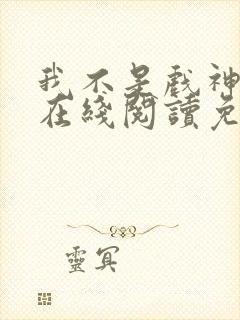 我不是戏神
在綫閱讀免
靈冥